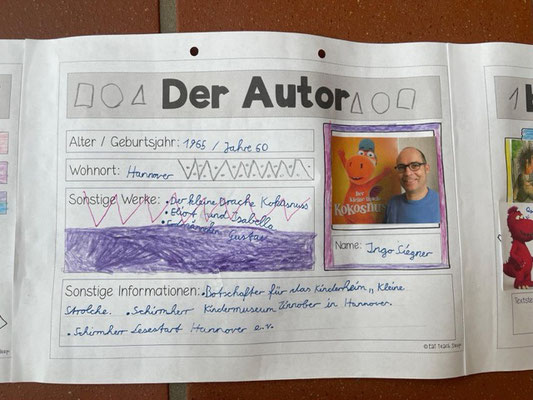 Der Autor
Alter / Geburtsjahr: 1965 / Jahre 60
Wohnort: Hannover
Sonstige Werke: • Der kleine Drache Kokosnuss
• Eliot und Isabella
Gustav
Der kleine Drache
KOKOSNUSS
Name: Ingo Siegner
Sonstige Informationen: • Botschafter für das Kinderheim „ Kleine
Strolche. • Schirmherr Kindermuseum Zinnober in Hannover.
• Schirmherr Lesestart Hannover e.V.